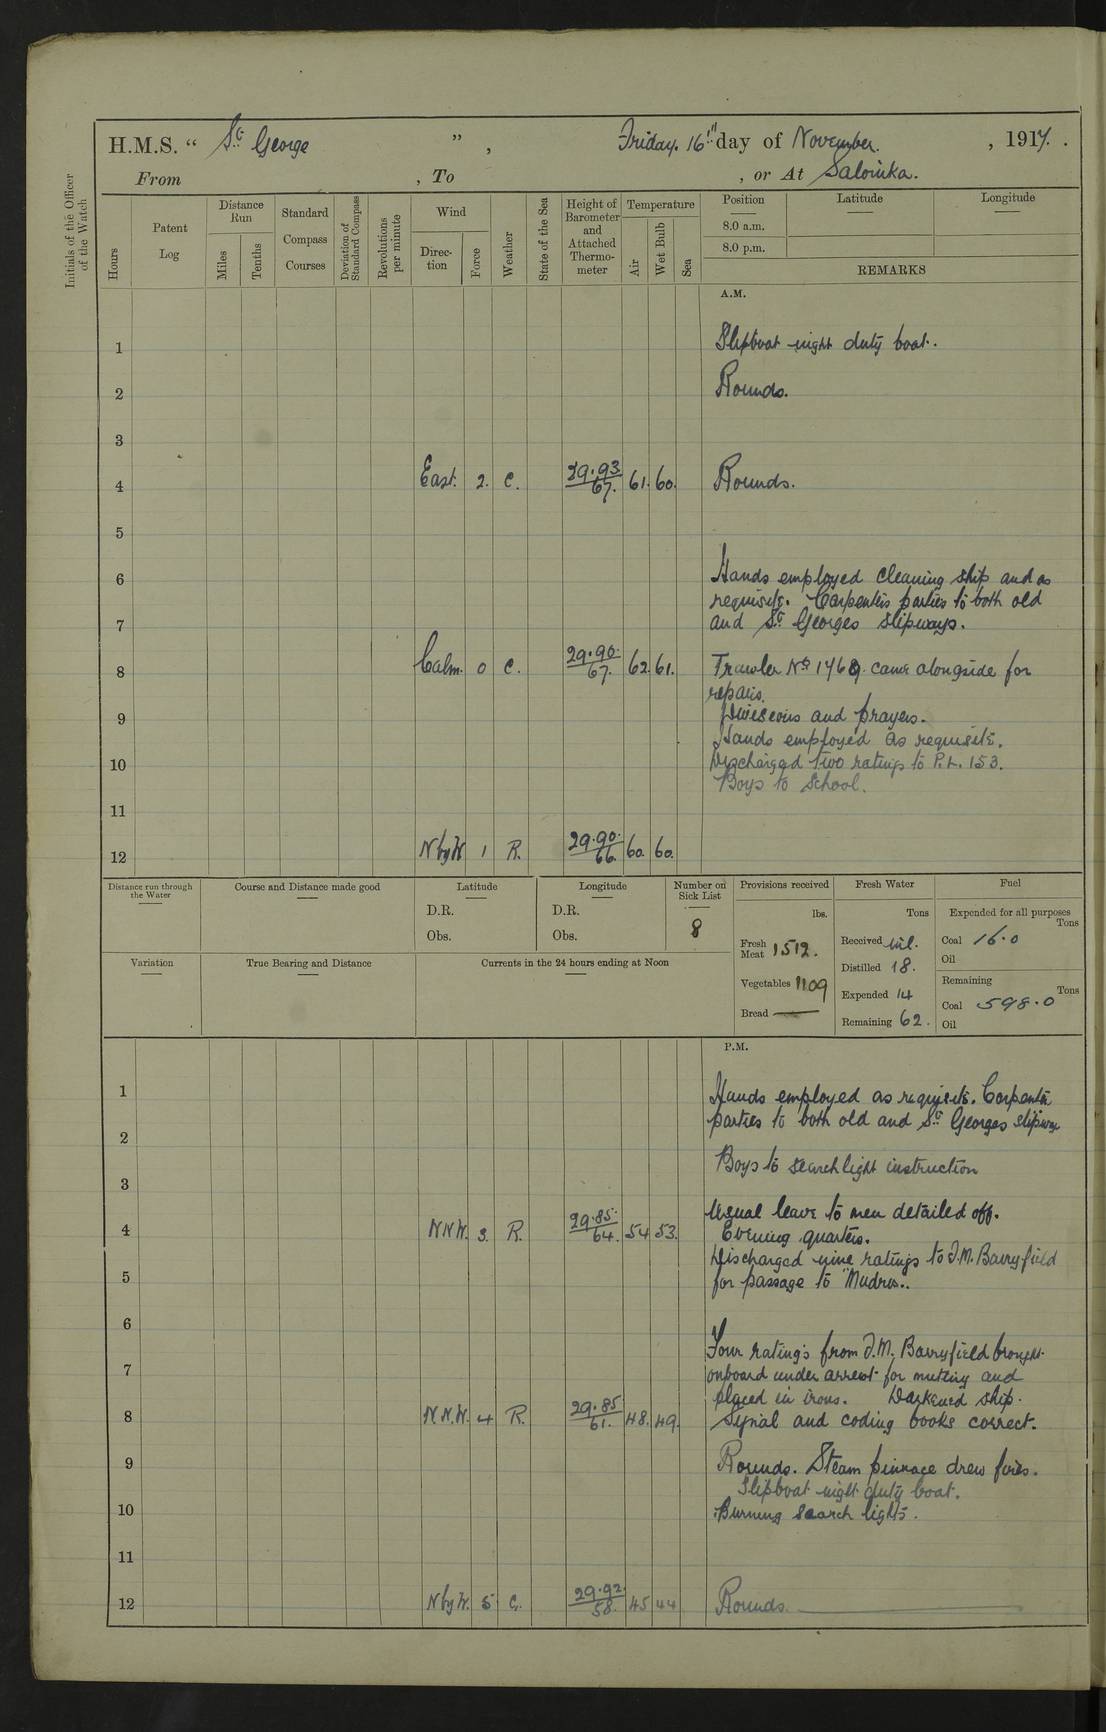 H.M.S. " St George " , Friday. 16th day of November. , 1917. .
From , To , or At Salonika.
Initials of the Officer of the Watch
Hours
Patent Log
Distance Run
Miles
Tenths
Standard Compass Courses
Deviation of Standard Compass
Revolutions per minute
Wind
Direc- tion
Force
Weather
State of the Sea
Height of Barometer and Attached Thermo- meter
Temperature
Air
Wet Bulb
Sea
Position
8.0 a.m.
8.0 p.m.
Latitude
Longitude
REMARKS
A.M.
1 Slipboat night duty boat.
2 Rounds.
3
4 East. 2. C. 29.93. 67. 61. 60. Rounds.
5
6 Hands employed cleaning ship and as
requisite. Carpenters parties to both old
7 and St Georges slipways.
8 Calm. 0 C. 29.90. 67. 62. 61. Trawler No 1468. came alongside for
repairs.
9 Divisions and prayers.
Hands employed as requisite.
10 Discharged two ratings to P.L. 153.
Boys to School.
11
12 N by W 1 R. 29.90. 66. 60. 60.
Distance run through the Water
Course and Distance made good
Latitude
D.R.
Obs.
Longitude
D.R.
Obs.
Number on Sick List
8
Provisions received
lbs.
Fresh Meat 1512.
Vegetables 1109
Bread —
Fresh Water
Tons
Received nil.
Distilled 18.
Expended 14
Remaining 62.
Fuel
Expended for all purposes
Tons
Coal 16.0
Oil
Remaining
Tons
Coal 598.0
Oil
Variation
True Bearing and Distance
Currents in the 24 hours ending at Noon
P.M.
1 Hands employed as requisite. Carpenter
parties to both old and St Georges slipway
2
Boys to searchlight instruction
3
Usual leave to men detailed off.
4 NNW. 3. R. 29.85. 64. 54 53. Evening quarters.
Discharged nine ratings to F.M. Barryfield
5 for passage to "Mudros..
6
Four ratings from F.M. Barryfield brought
7 onboard under arrest for mutiny and
placed in irons. Darkened ship.
8 N.N.W. 4 R. 29.85 61. 48. 49. Signal and coding books correct.
9 Rounds. Steam pinnace drew fires.
Slipboat night duty boat.
10 Burning search lights.
11
12 N by W. 5 C. 29.92. 58. 45 44 Rounds.